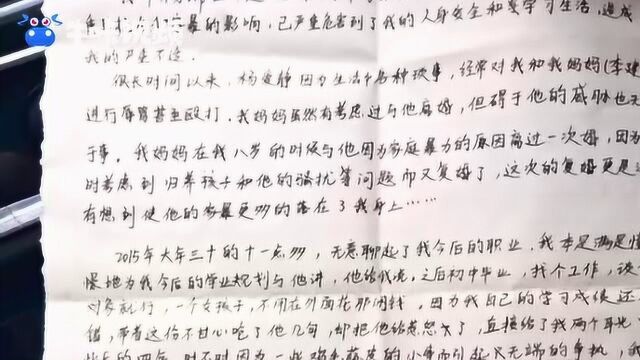 暴的影响,已严重危害到了我的人身安全和学习生活,造成
我的严重不适。
很长时间以来,杨爱静因为生活中各种琐事,经常对我和我妈妈(李建
进行辱骂甚至殴打。我妈妈虽然有考虑过与他离婚,但碍于他的威胁也无
于事。我妈妈在我八岁的时候与他因为家庭暴力的原因离过一次婚,因为
时考虑到归养孩子和他的骚扰等问题而又复婚了,这次的复婚更是
有想到使他的家暴更多的落在了我身上……
2015年大年三十的十一点多,无意聊起了我今后的职业。我本是满是憧
憬地为我今后的学业规划与他讲,他给我说,之后初中毕业,找个工作,谈
对象就行,一个女孩子,不用在外面花那闲钱,因为我自己的学习成绩还
错,带着这份不甘心吃了他几句,却把他给惹怒了,直接给了我两个耳光
的四年,时不时因为一些鸡毛蒜皮的小事而引起只无端的争执,